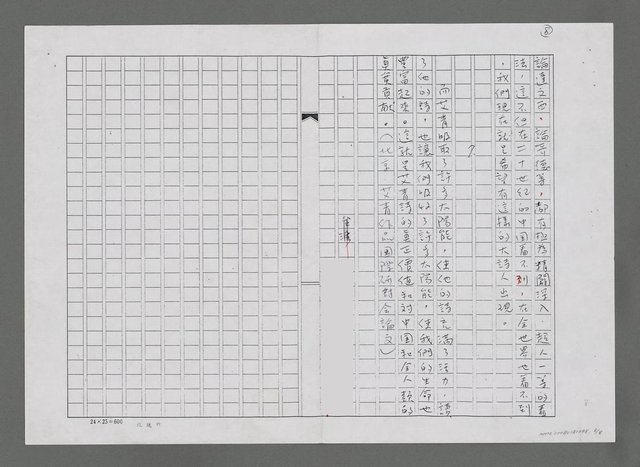 8
論達之西,論哥德等,都有極為精闢深入、超人一等的看
法,這不但在二十世紀的中国看不到,在全世界也看不到
。我們現在就是希望有這樣的大詩人出現。
7.
而艾青吸取了許多太陽能,使他的詩充滿了活力,讀
了他的詩,也讓我們吸收了許多太陽能,使我們的生命也
豐富起來。這就是艾青詩的真正價值和對中国和全人類的
真實貢献。(北京艾青作品国際研討会論文)
24×25=600